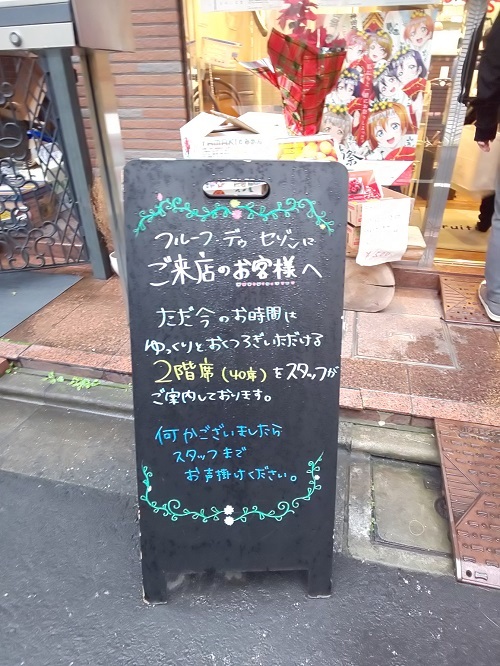 フルーフ・デゥ・セゾンに
ご来店のお客様へ
ただ今のお時間は
ゆっくりとおくつろぎいただける
2階席(40席)をスタッフが
ご案内しております。
何かございましたら
スタッフまで
お声掛けください。